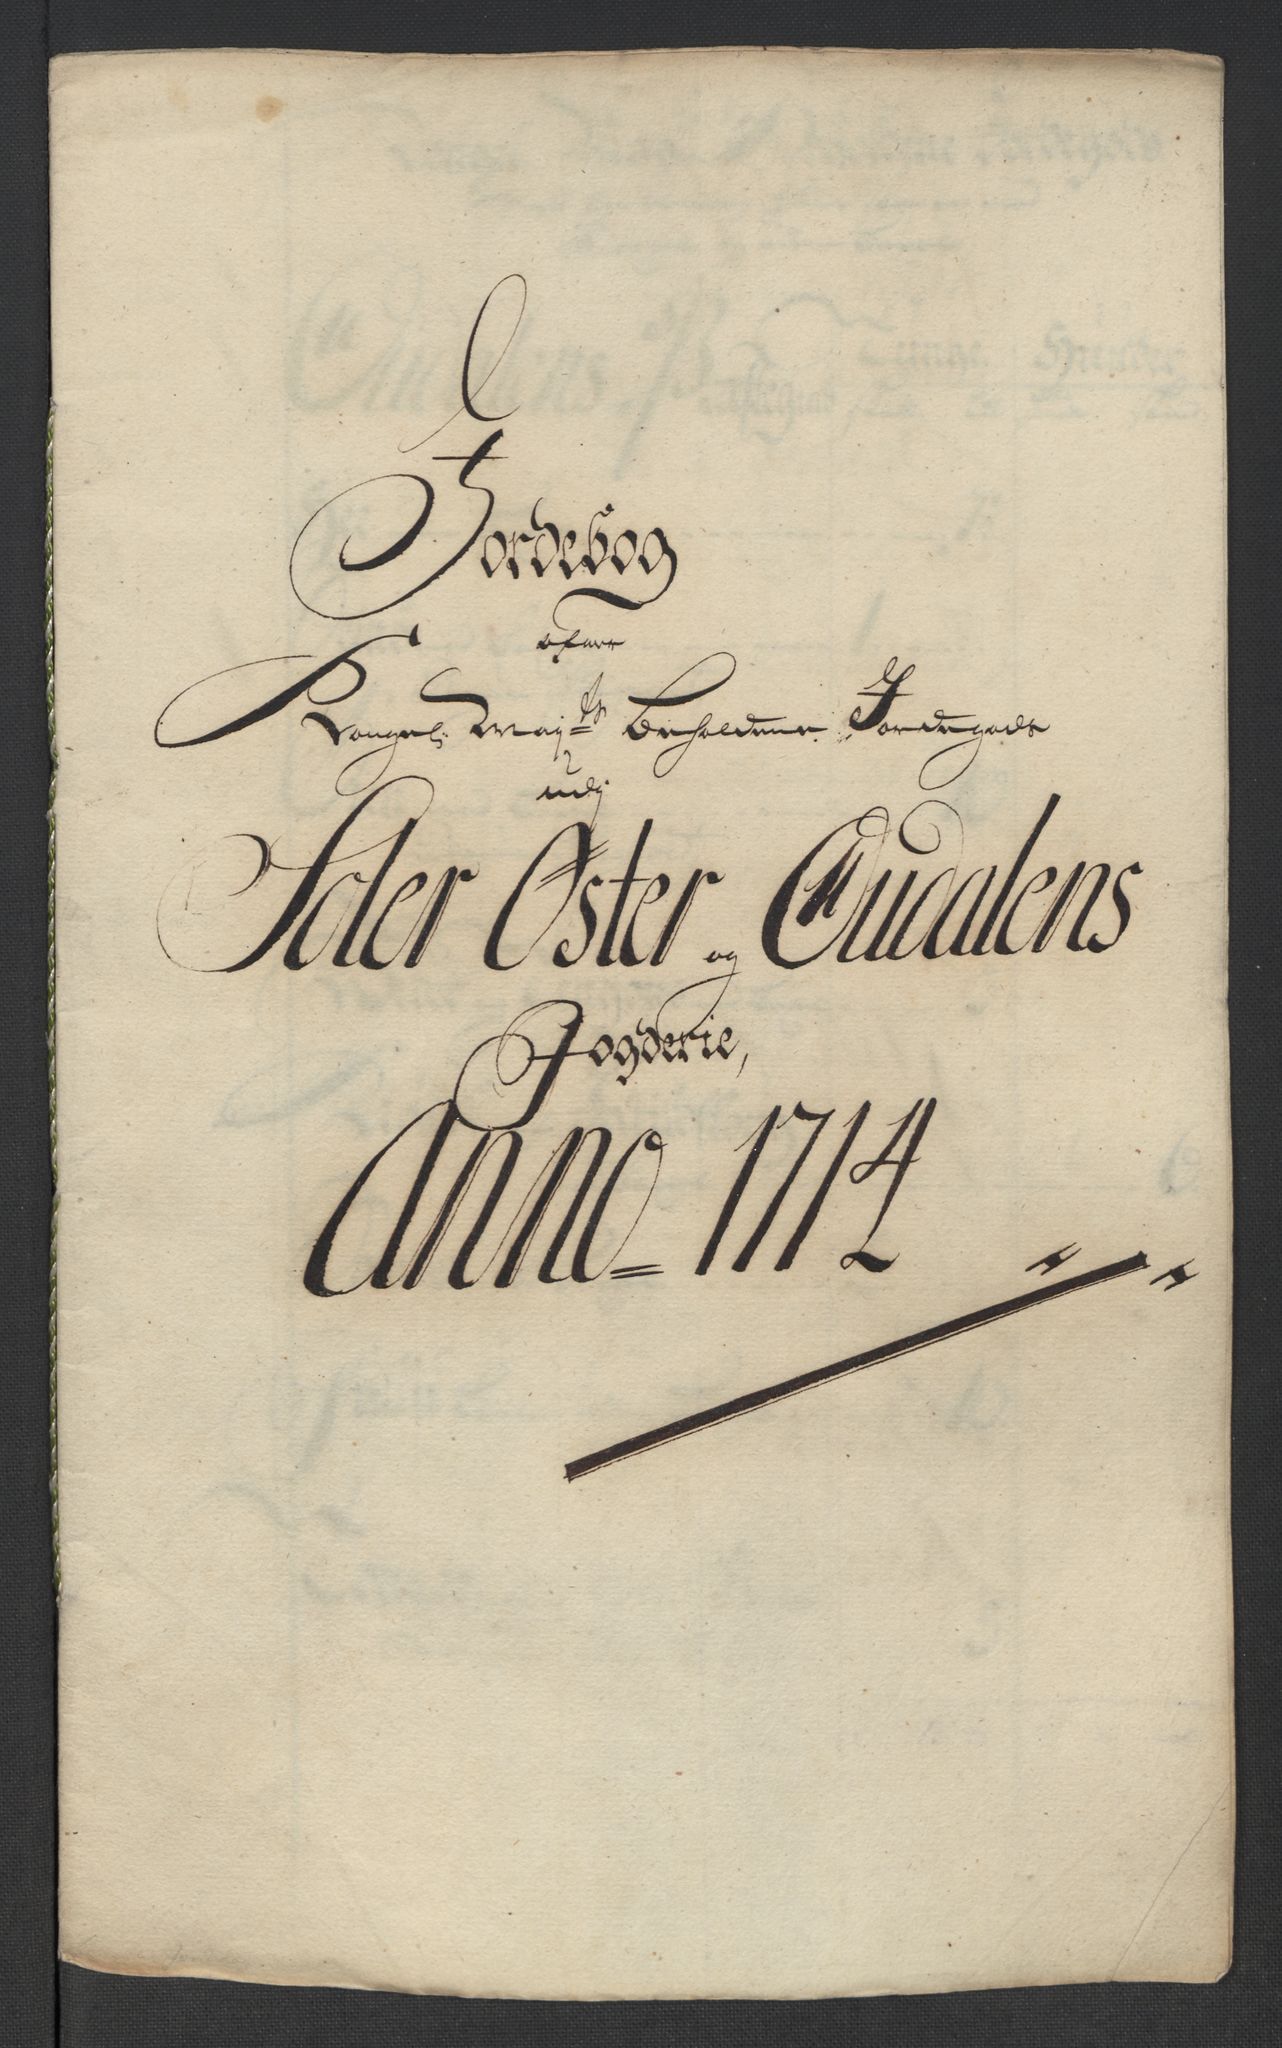 Jordebog
ofver
Kongel: May:ts Beholdene Jordegods
udj
Soler Øster og Oudalens
Fogderie,
Anno = 1714